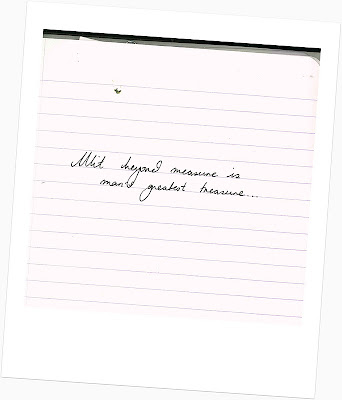 Wit beyond measure is
man's greatest treasure...